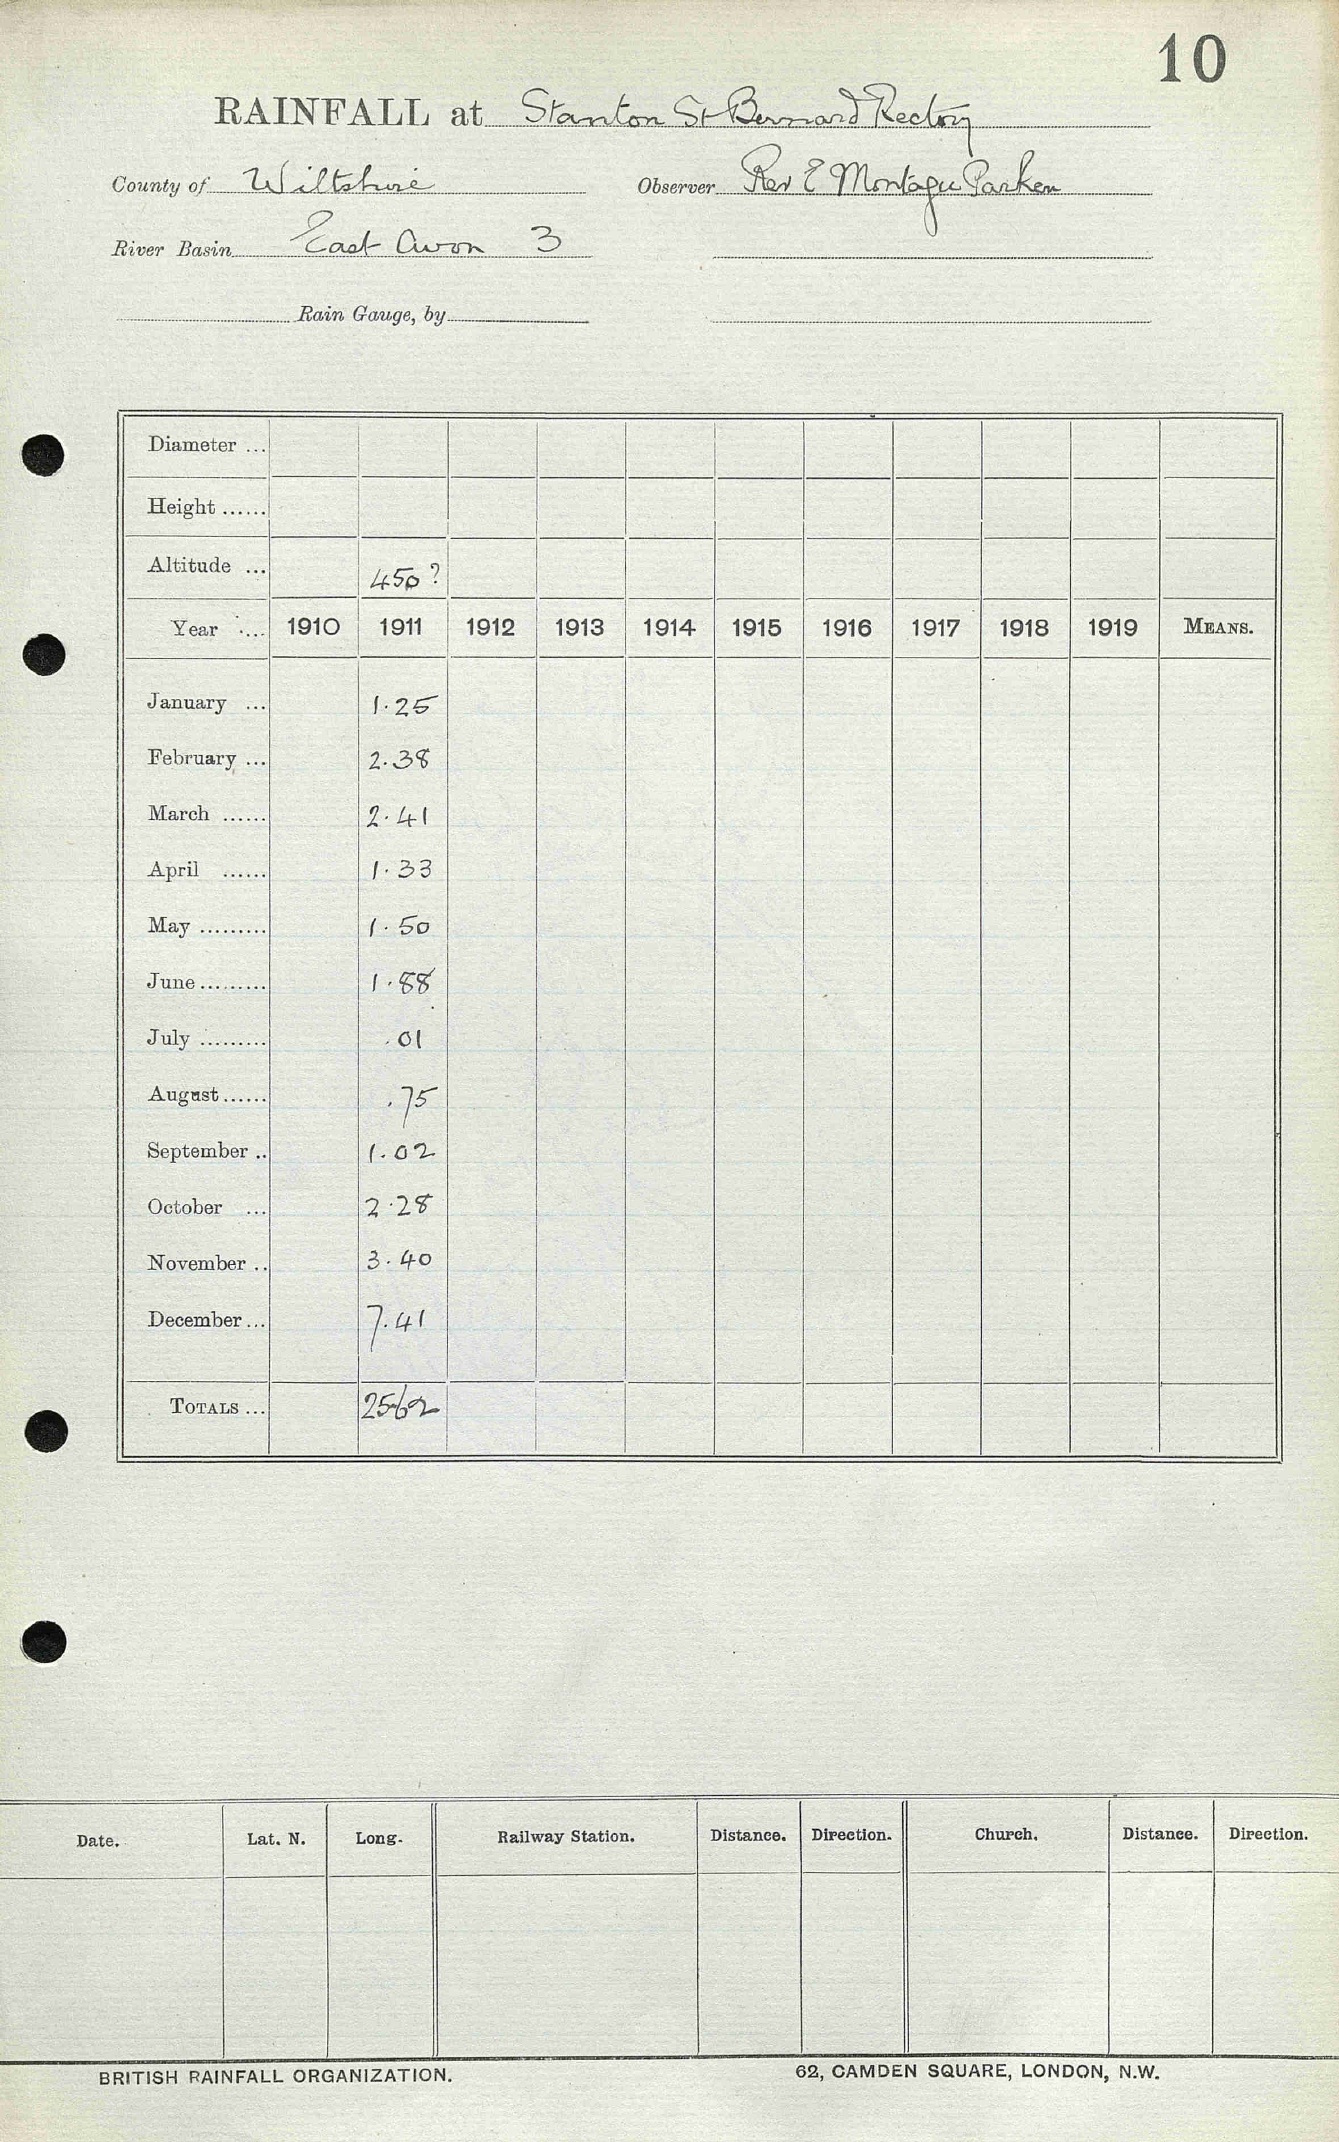 10
RAINFALL at Stanton St Bernard Rectory
County of Wiltshire Observer Rev E Montagu Parken
River Basin East Avon 3
Rain Gauge, by
Diameter ...
Height ......
Altitude ... 450?
Year .... 1910 1911 1912 1913 1914 1915 1916 1917 1918 1919 MEANS.
January ... 1.25
February ... 2.38
March ...... 2.41
April ...... 1.33
May ......... 1.50
June ......... 1.88
July ......... .01
August ...... .75
September .. 1.02
October ... 2.28
November .. 3.40
December ... 7.41
TOTALS ... 25.62
Date. Lat. N. Long. Railway Station. Distance. Direction. Church. Distance. Direction.
BRITISH RAINFALL ORGANIZATION. 62, CAMDEN SQUARE, LONDON, N.W.